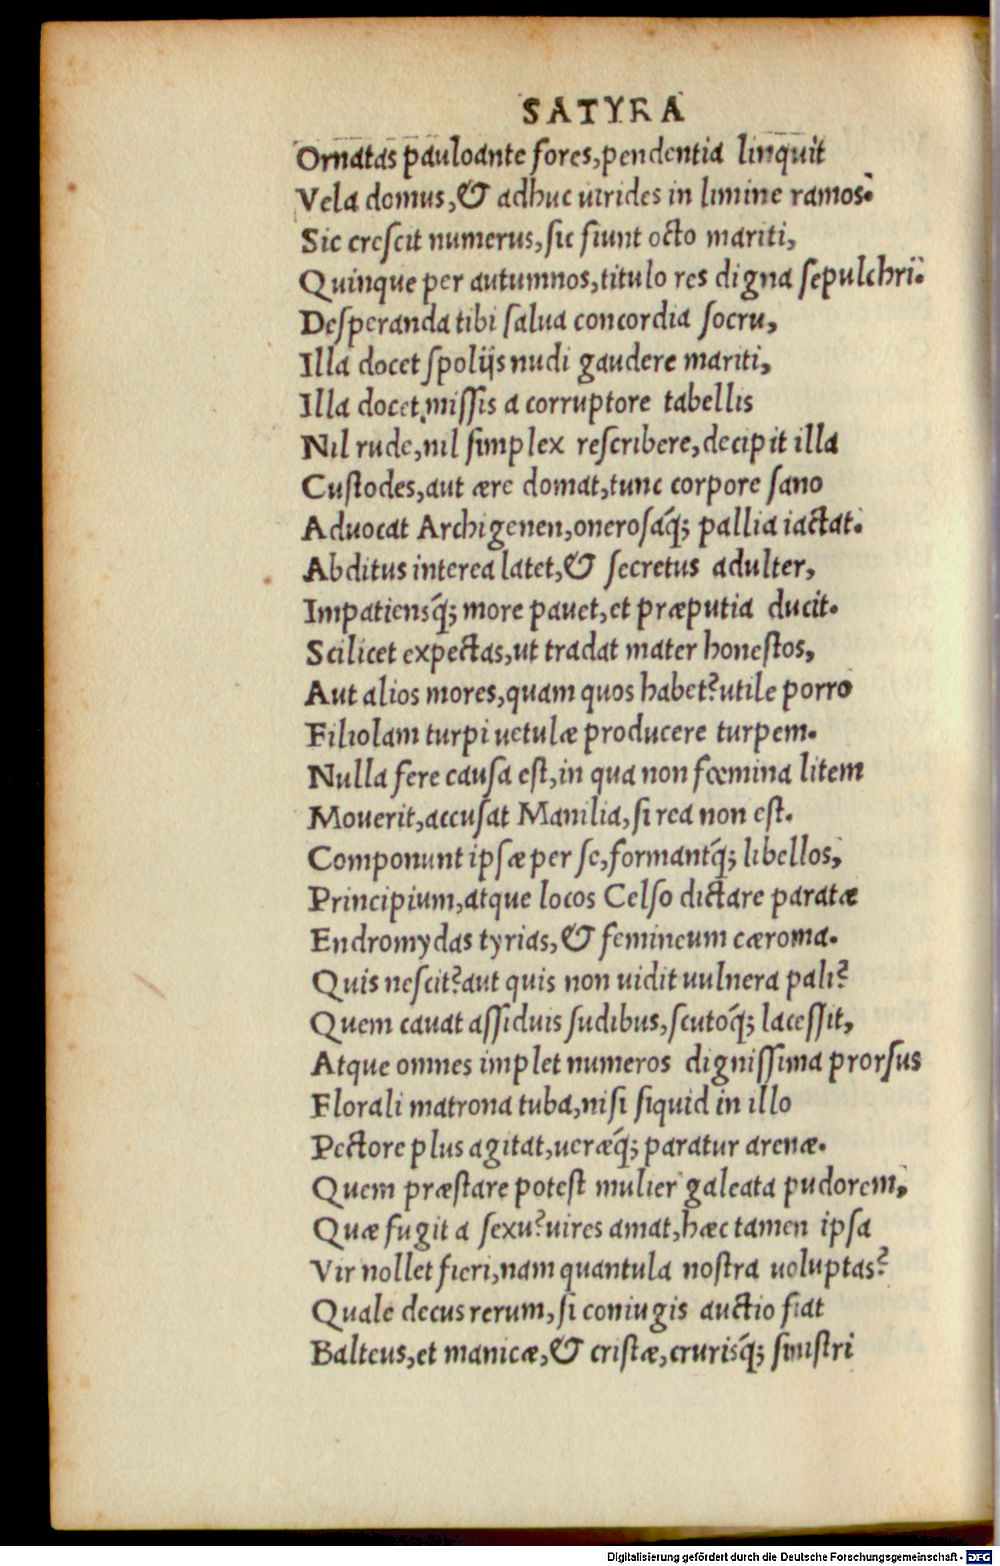 SATYRA
Ornatas pauloante fores,pendentia linquit
Vela domus,& adhuc uirides in limine ramos.
Sic crescit numerus,sic fiunt octo mariti,
Quinque per autumnos,titulo res digna sepulchri.
Desperanda tibi salua concordia socru,
Illa docet spolijs nudi gaudere mariti,
Illa docet,missis a corruptore tabellis
Nil rude,nil simplex rescribere,decipit illa
Custodes,aut ære domat,tunc corpore sano
Aduocat Archigenen,onerosaq́; pallia iactat.
Abditus interea latet,& secretus adulter,
Impatiensq́; more pauet,et præputia ducit.
Scilicet expectas,ut tradat mater honestos,
Aut alios mores,quam quos habet?utile porro
Filiolam turpi uetulæ producere turpem.
Nulla fere causa est,in qua non fœmina litem
Mouerit,accusat Manilia,si rea non est.
Componunt ipsæ per se,formantq́; libellos,
Principium,atque locos Celso dictare paratæ
Endromydas tyrias,& femineum cæroma.
Quis nescit?aut quis non uidit uulnera pali?
Quem cauat assiduis sudibus,scutoq́; lacessit,
Atque omnes implet numeros dignissima prorsus
Florali matrona tuba,nisi siquid in illo
Pectore plus agitat,ueræq́; paratur arenæ.
Quem præstare potest mulier galeata pudorem,
Quæ fugit a sexu?uires amat,hæc tamen ipsa
Vir nollet fieri,nam quantula nostra uoluptas?
Quale decus rerum,si coniugis auctio fiat
Balteus,et manicæ,& cristæ,crurisq́; sinistri
Digitalisierung gefördert durch die Deutsche Forschungsgemeinschaft - DFG